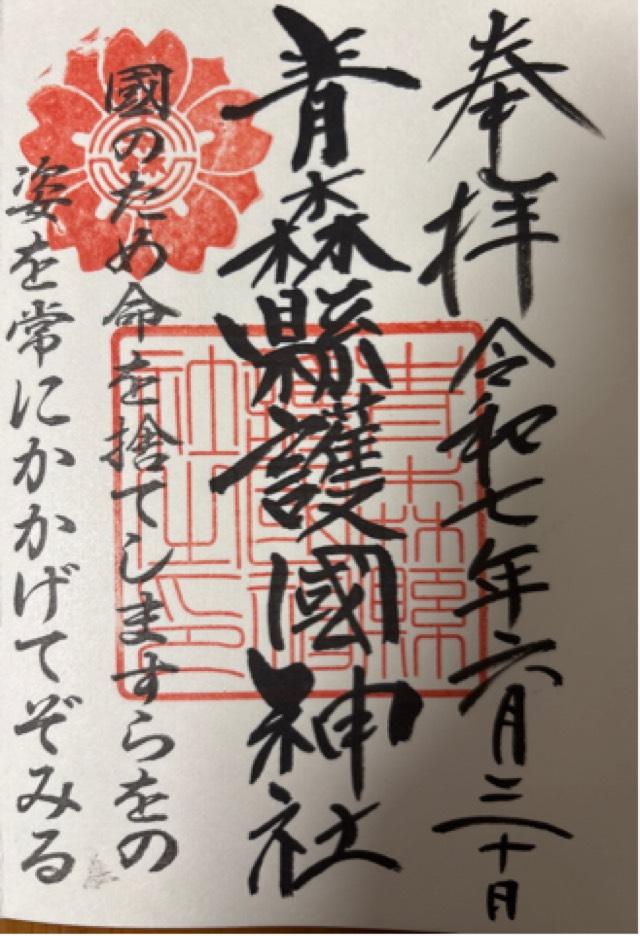 奉拝 令和七年六月三十日
青森縣護國神社
國のため命を捨てしますらをの
姿を常にかかげてぞみる
青森縣護國神社之印